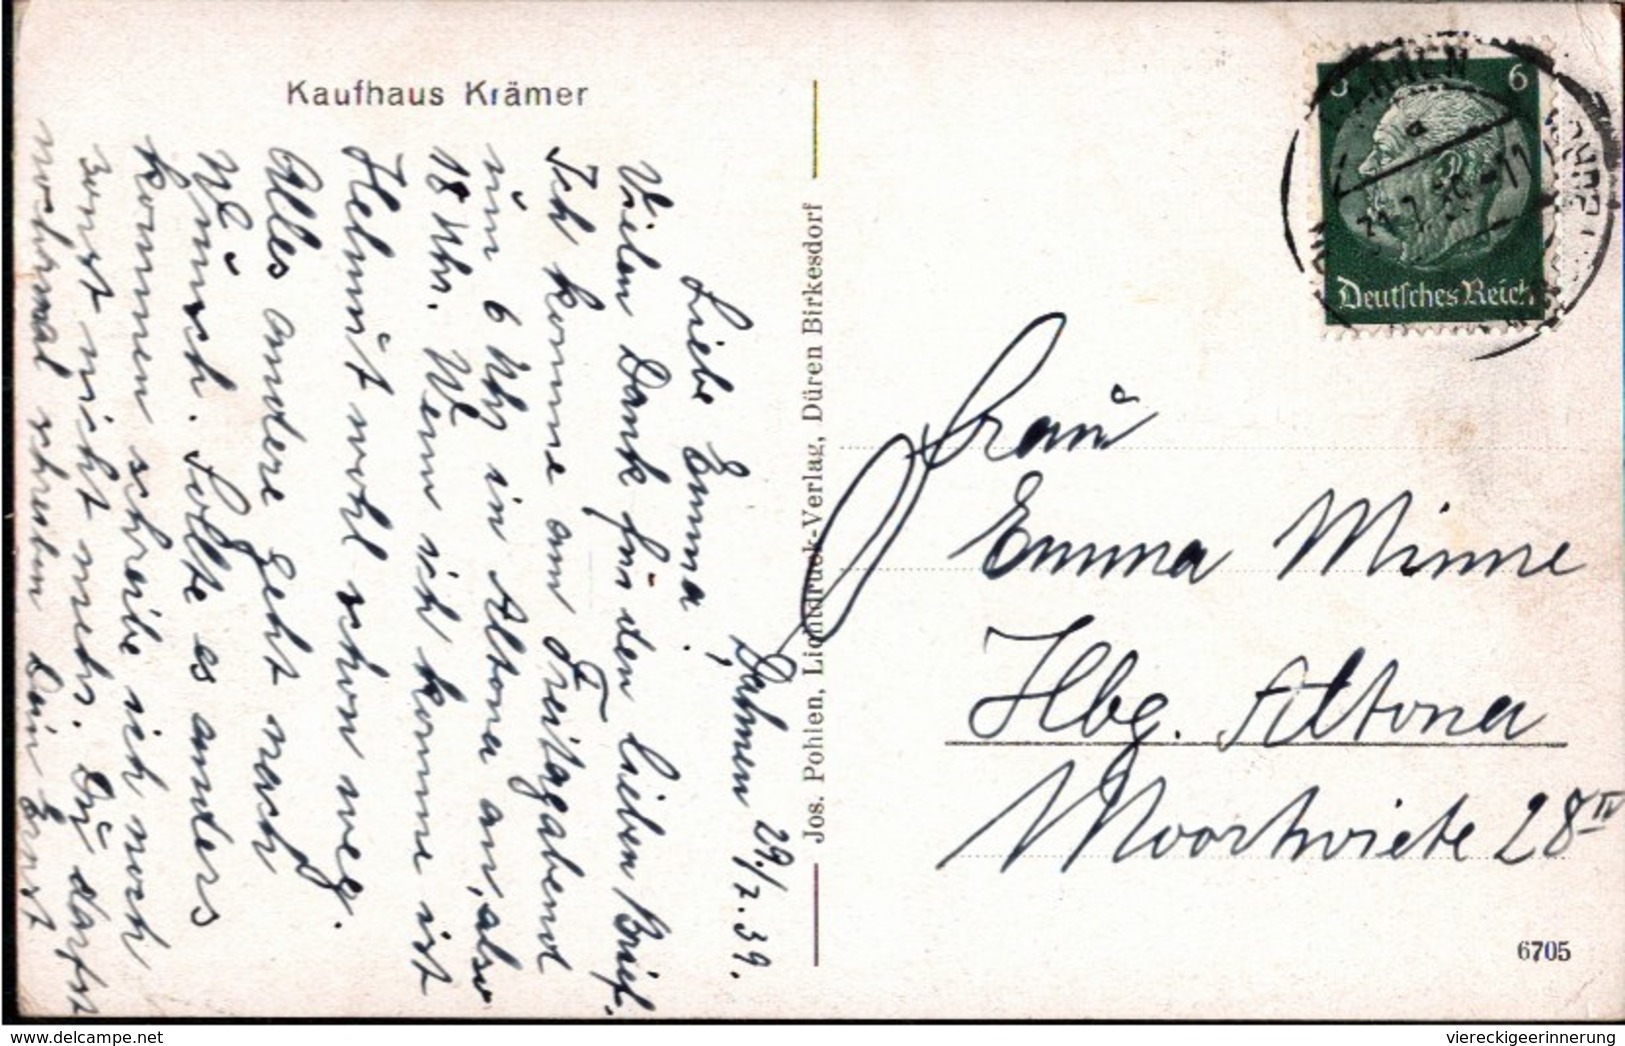 Kaufhaus Krämer
Dahmen 29./7.39.
Liebe Emma.
Vielen Dank für den lieben Brief.
Ich komme am Freitagabend
um 6 Uhr in Altona an, also
18 Uhr. Wenn ich komme ist
Helmut wohl schon weg.
Alles andere geht nach
Wunsch. Sollte es anders
kommen schreibe ich noch
sonst nicht mehr. Du darfst
nochmal schreiben Dein Ernst
Jos. Pohlen, Lichtdruck-Verlag, Düren Birkesdorf
6
Deutsches Reich
Frau
Emma Minne
Hbg. Altona
Moortwiete 28 IV
6705
delcampe.net
viereckigeerinnerung